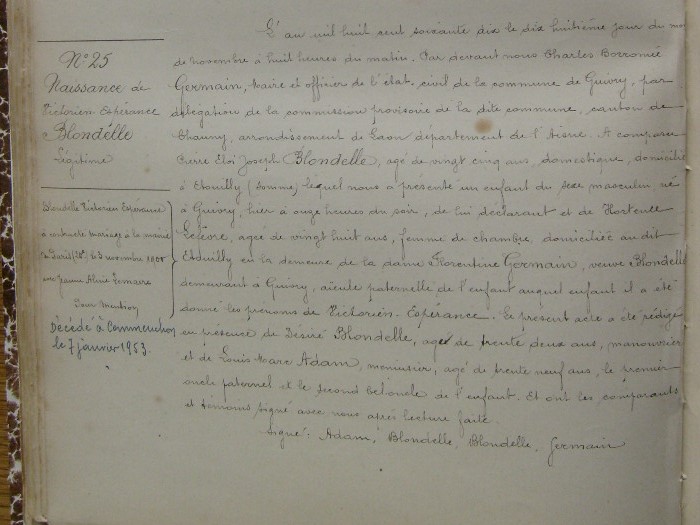 N° 25
Naissance de
Victorien Espérance
Blondelle
Légitime
Blondelle Victorien Espérance
a contracté mariage à la mairie
de Paris le 3 novembre
avec Jeanne Lemaire
Pour Mention
Décédé à Commenchon
le 7 janvier 1953.
L'an mil huit cent soixante dix le dix huitième jour du mois
de novembre à huit heures du matin. Par devant nous Charles Borromée
Germain, Maire et officier de l'état civil de la commune de Guivry, par
délégation de la commission provisoire de la dite commune, canton de
Chauny, arrondissement de Laon département de l'Aisne. A comparu
Pierre Eloi Joseph Blondelle, agé de vingt cinq ans, domestique, domicilié
à Etouilly (Somme) lequel nous a présenté un enfant du sexe masculin né
à Guivry, hier à onze heures du soir, de lui déclarant et de Hortense
Lefèvre, agée de vingt huit ans, femme de chambre, domiciliée au dit
Etouilly en la demeure de la dame Florentine Germain, veuve Blondelle
demeurant à Guivry, aïeule paternelle de l'enfant auquel enfant il a été
donné les prénoms de Victorien-Espérance. Le présent acte a été rédigé
en présence de Désiré Blondelle, agé de trente deux ans, manouvrier
et de Louis Marc Adam, menuisier, agé de trente neuf ans, le premier
oncle paternel et le second bel oncle de l'enfant. Et ont les comparants
et témoins signé avec nous après lecture faite.
Signé: Adam, Blondelle, Blondelle, Germain